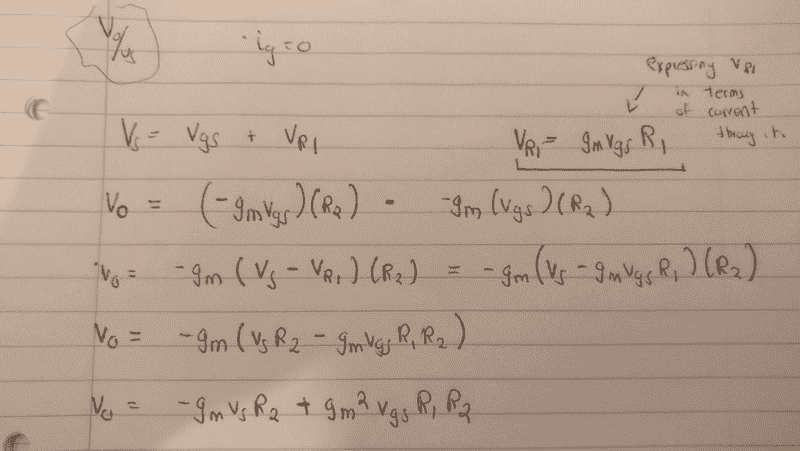 Vo/vs
· ig = 0
expressing VR1
in terms
of current
throug it.
Vs = Vgs + VR1
VR1 = gmvgs R1
Vo = (-gmvgs)(R2) - -gm (vgs)(R2)
Vo = -gm (Vs - VR1)(R2) = -gm (Vs - gmvgs R1)(R2)
Vo = -gm (vs R2 - gmvgs R1 R2)
Vo = -gm vs R2 + gm² vgs R1 R2